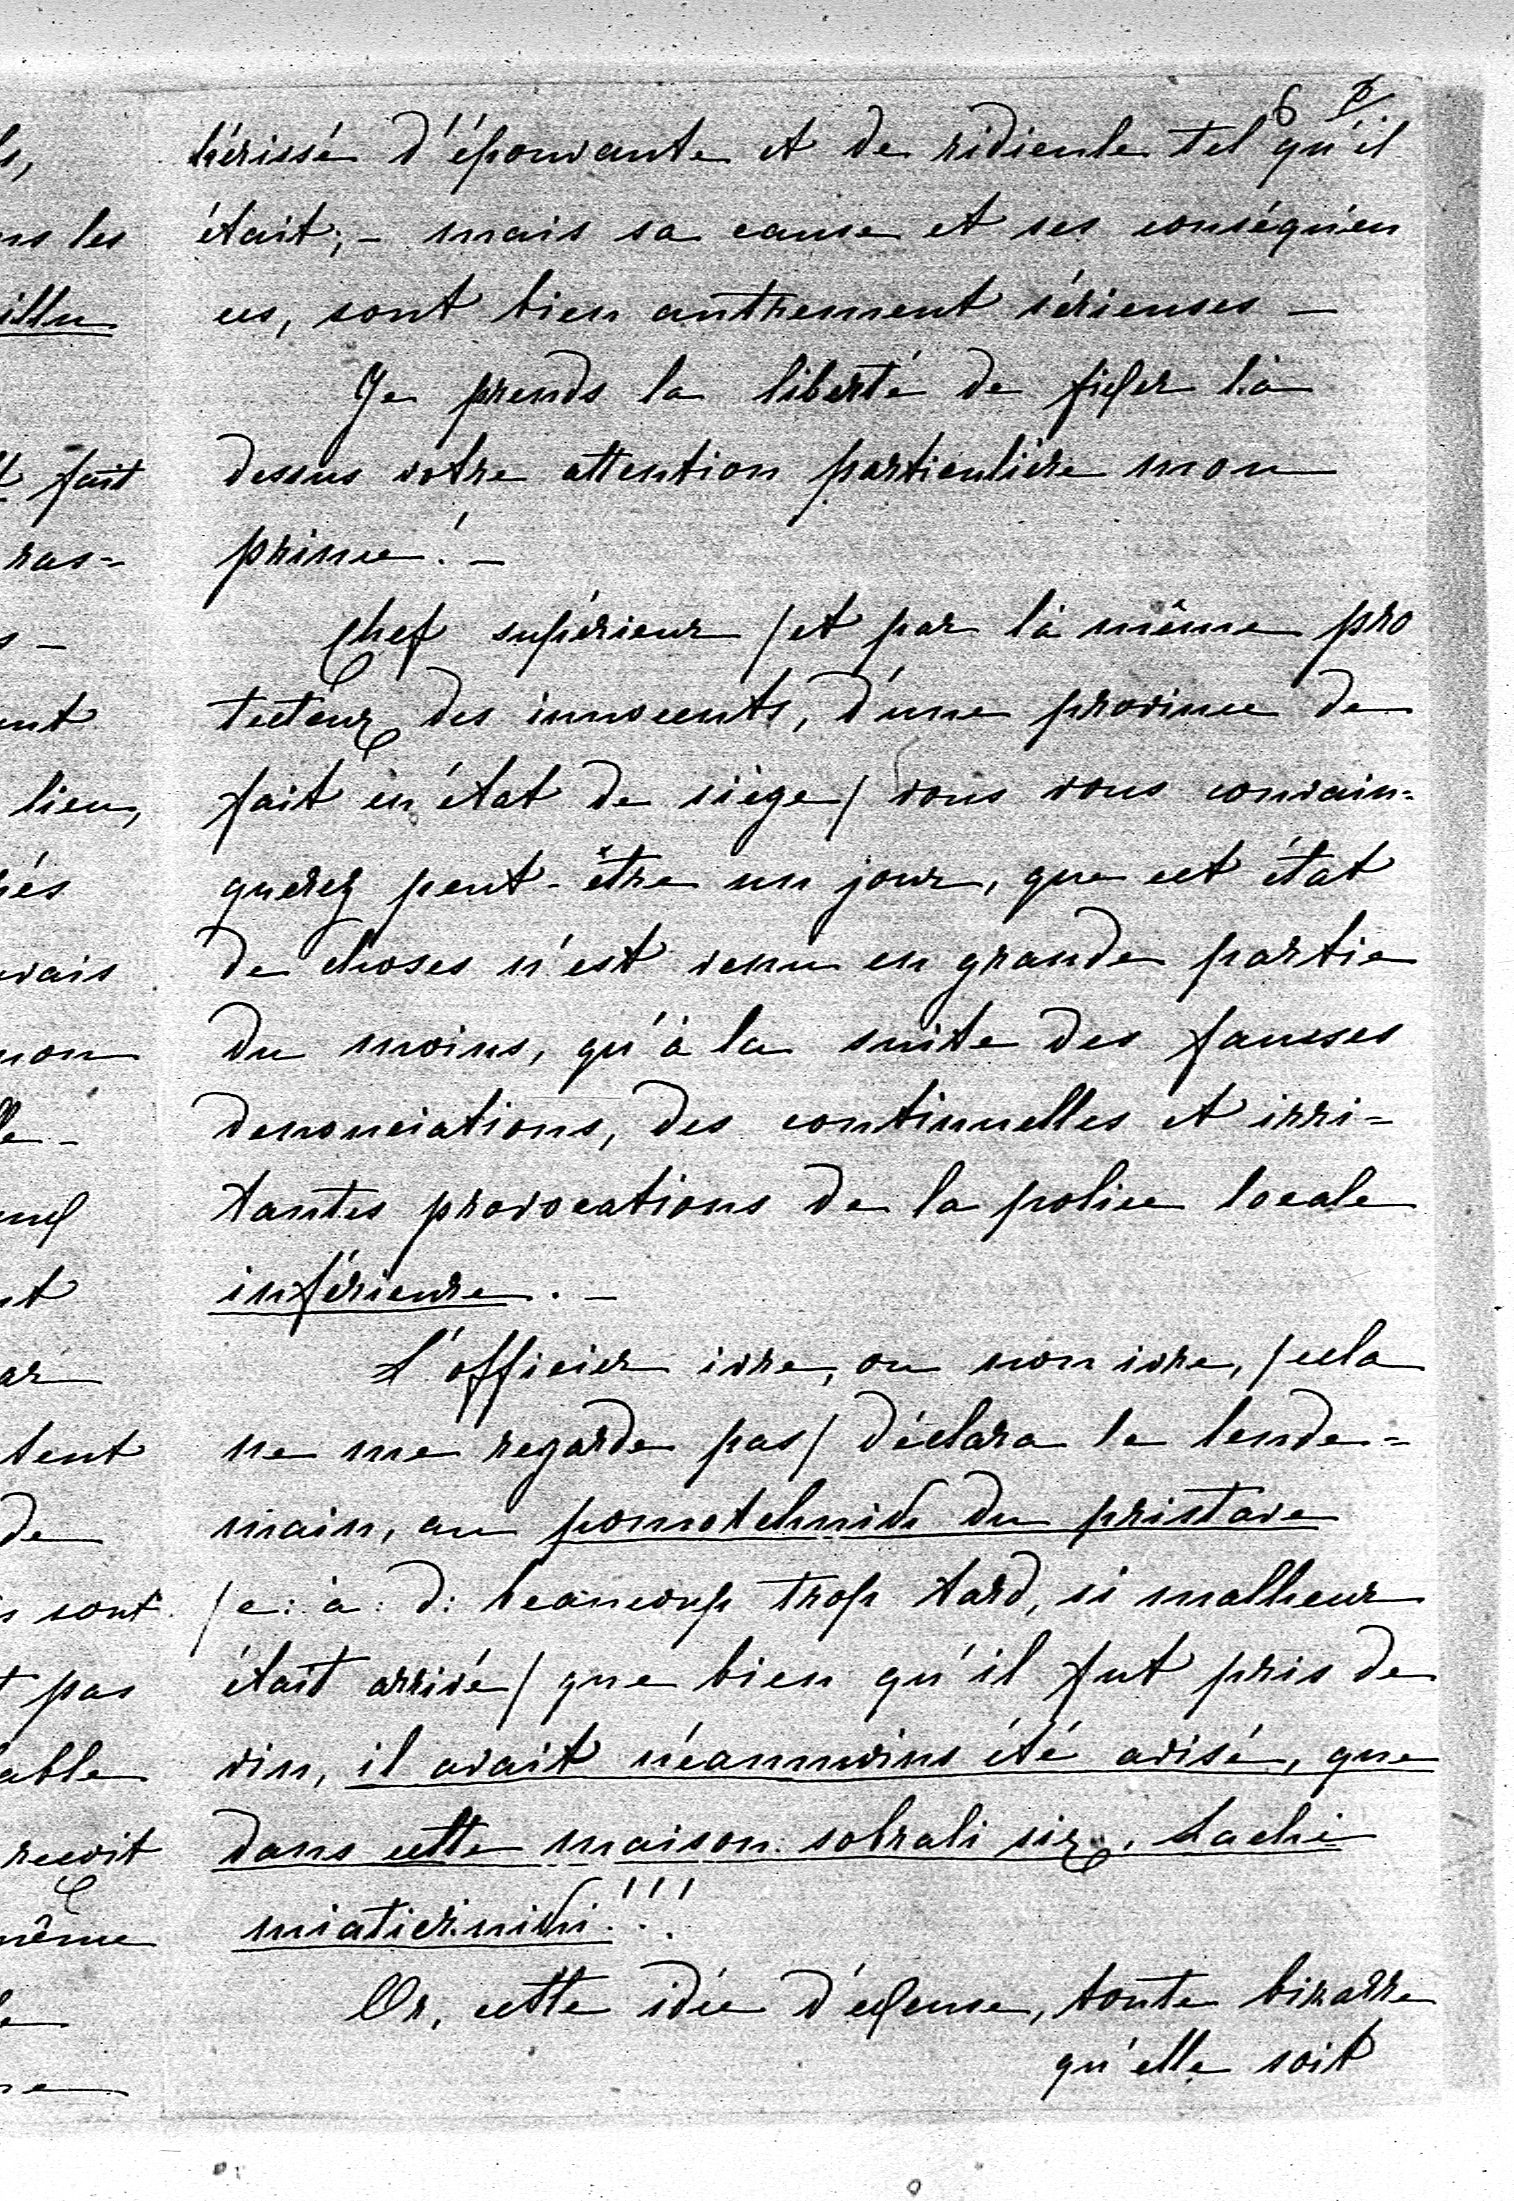 6
hérissé d'épouvante et de ridicule tel qu'il
était; – mais sa cause et ses conséquen
ces, sont bien autrement sérieuses –
Je prends la liberté de fixer là
dessus votre attention particulière mon
prince! –
Chef supérieur /et par là même pro
tecteur des innocents, d'une province de
fait en état de siège/ vous vous convain=
querez peut-être un jour, que cet état
de choses n'est venu en grande partie
du moins, qu'à la suite des fausses
denonciations, des continuelles et irri=
tantes provocations de la police locale
inférieure. –
L'officier ivre, ou non ivre, /cela
ne me regarde pas/ déclara le lende=
main, au pomotchnik du pristave
/c: à: d: beaucoup trop tard, si malheur
était arrivé/ que bien qu'il fut pris de
vin, il avait néanmoins été avisé, que
dans cette maison sobrali się, lachi
miatierniki!!!
Or, cette idée d'excuse, toute bizarre
qu'elle soit
s,
ns les
illu
fait
ras=
s –
ent
lieu,
vais
non
le –
nt
tent
de
sont
pas
able
reçoit
même